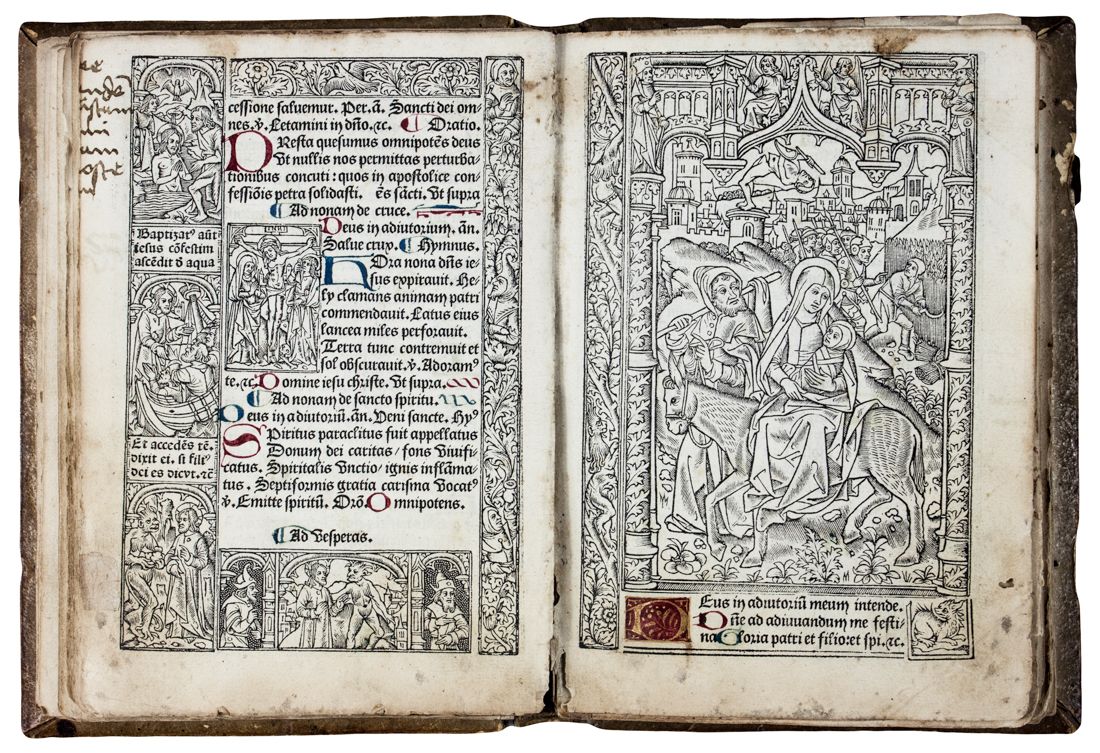 ee
ande
stam
ni
um
oste
cessione saluemur. Pet. ā. Sancti dei om-
nes. ꝟ. Letamini in dn̄o. ⁊c. ¶ Oratio.
PResta quesumus omnipotēs deus
Vt nullis nos permittas perturba-
tionibus concuti: quos in apostolice con-
fessiōis petra solidasti. ēs sācti. Vt supra
¶ Ad nonam de cruce.
Deus in adiutorium. ān.
Salue crux. ¶ Hymnus.
HOra nona dn̄s ie-
sus expirauit. He-
ly clamans animam patri
commendauit. Latus eius
lancea miles perforauit.
Terra tunc contremuit et
sol obscurauit. ꝟ. Adoramꝰ
te. ⁊c. Domine iesu christe. Vt supra.
¶ Ad nonam de sancto spiritu.
Deus in adiutoriū. an. Veni sancte. Hyꝰ
SPiritus paraclitus fuit appellatus
Donum dei caritas / fons viuifi
catus. Spiritalis Vnctio / ignis inflāma
tus. Septiformis gratia carisma Vocatꝰ
ꝟ. Emitte spiritū. Orō. Omnipotens.
¶ Ad Vesperas.
Baptizatꝰ aūt
iesus cōfestim
ascēdit d aqua
Et accedēs tē.
dixit ei. si filiꝰ
dei es dic vt. ⁊c
DEus in adiutoriū meum intende.
Dn̄e ad adiuuandum me festi-
na Gloria patri et filio: et spi. ⁊c.